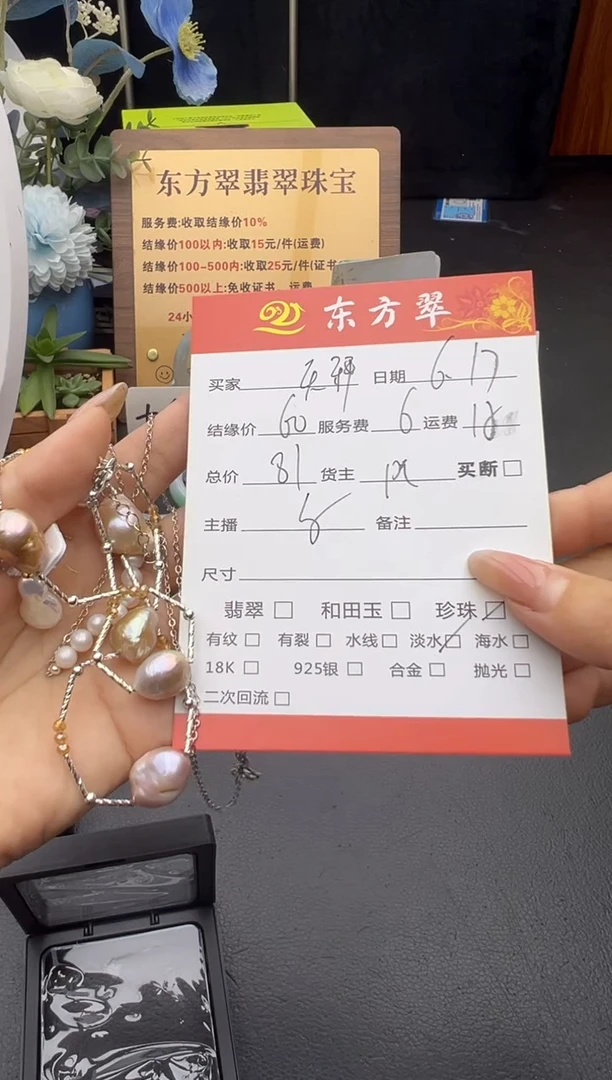 东方翠翡翠珠宝
服务费:收取结缘价10%
结缘价100以内:收取15元/件(运费)
结缘价100-500内:收取25元/件(证书
结缘价500以上:免收证书 运费
24小
东方翠
买家 日期 6.17
结缘价 60 服务费 6 运费
总价 81 货主 买断
主播 备注
尺寸
翡翠 和田玉 珍珠
有纹 有裂 水线 淡水 海水
18K 925银 合金 抛光
二次回流